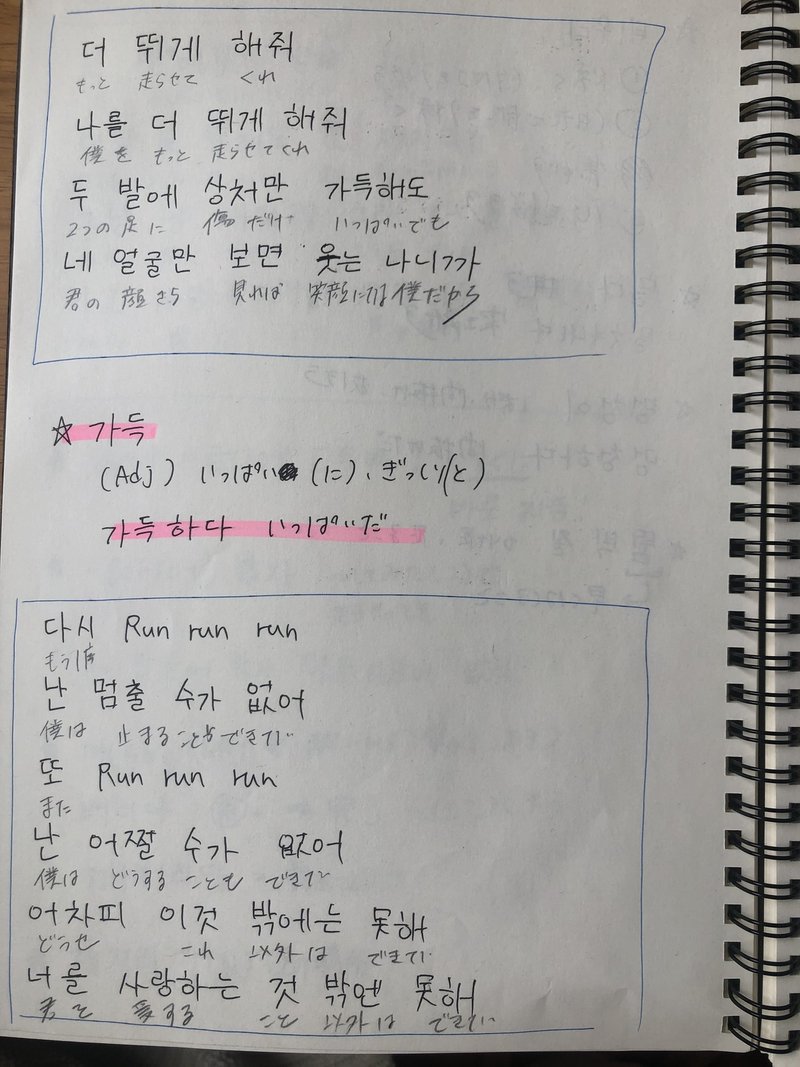 더 뛰게 해줘
もっと 走らせて くれ
나를 더 뛰게 해줘
僕を もっと 走らせてくれ
두 발에 상처만 가득해도
2つの足に 傷だけ いっぱいでも
네 얼굴만 보면 웃는 나니까
君の 顔さえ 見れば 笑顔になる 僕だから
☆ 가득
(Adj) いっぱい (に)、ぎっしり(と)
가득하다 いっぱいだ
다시 Run run run
もう1度
난 멈출 수가 없어
僕は 止まる ことも できない
또 Run run run
また
난 어쩔 수가 없어
僕は どうする ことも できない
어차피 이것 밖에는 못해
どうせ これ 以外は できない
너를 사랑하는 것 밖엔 못해
君を 愛する こと 以外は できない